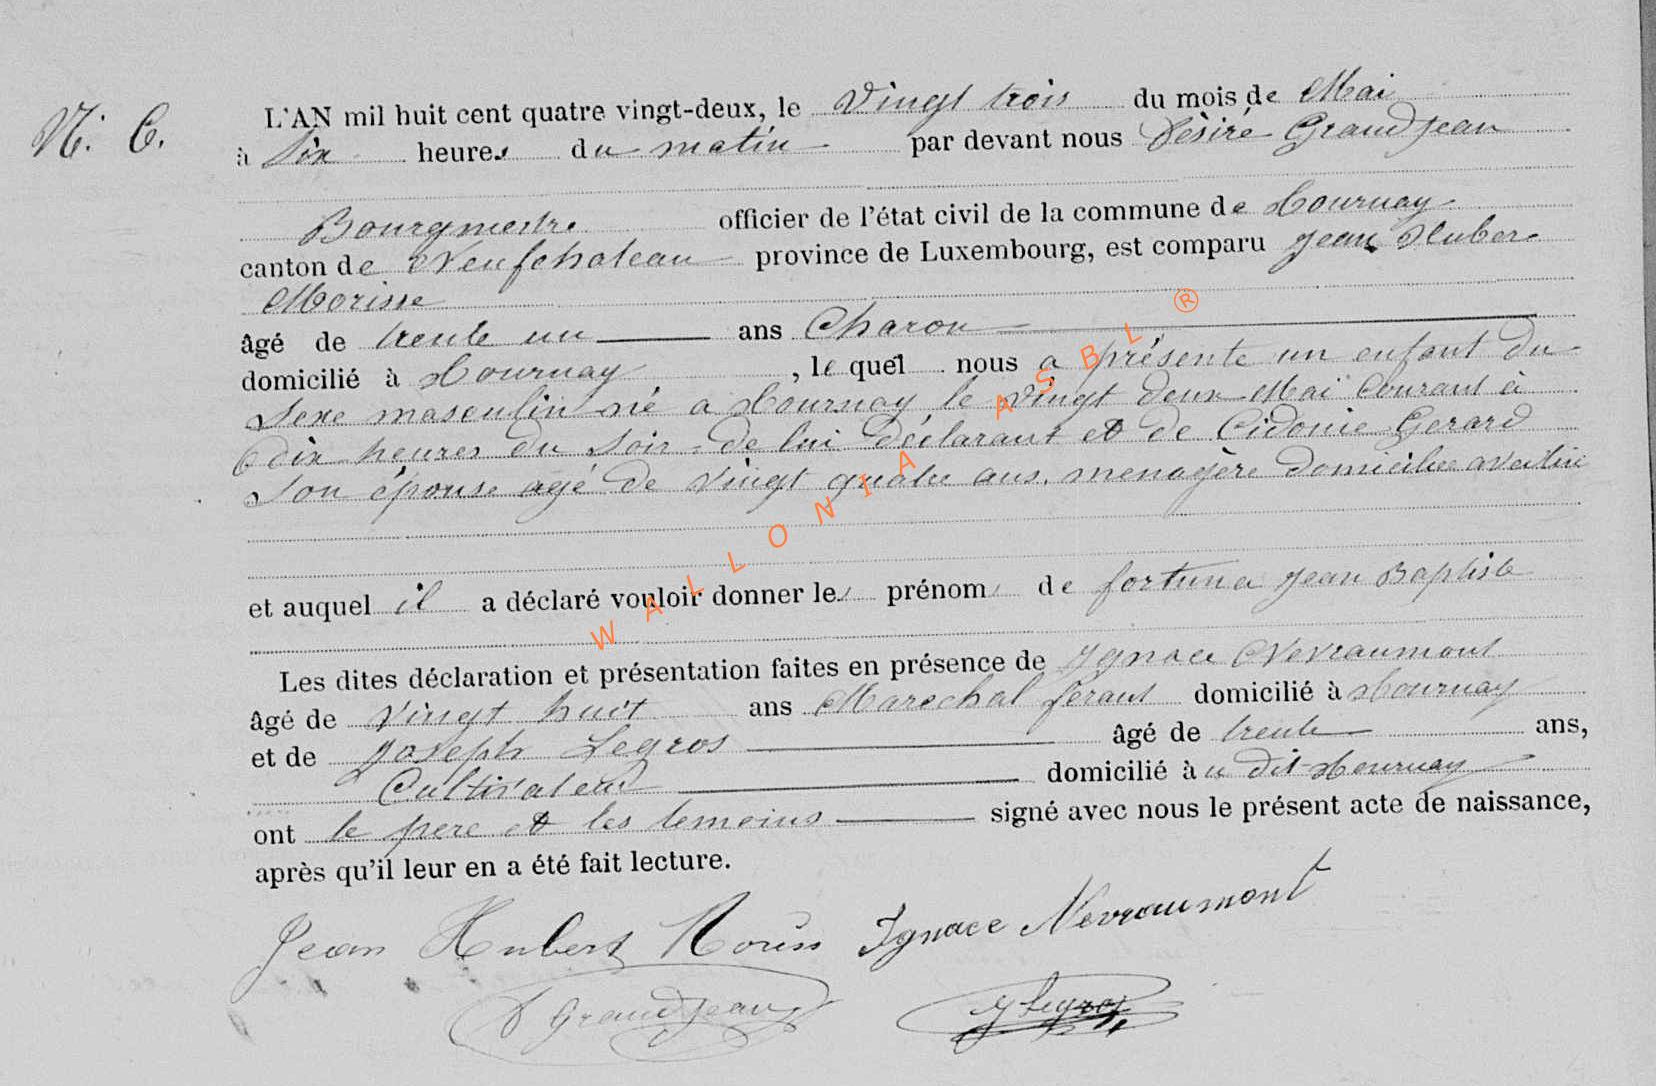 N. C.
L'AN mil huit cent quatre vingt-deux, le Vingt trois du mois de Mai
à Six heures du matin par devant nous Désiré Grandjean
Bourgmestre officier de l'état civil de la commune de Tournay
canton de Neufchateau province de Luxembourg, est comparu Jean Huber
Morisse
âgé de trente un ans Charon
domicilié à Tournay, le quel nous a présenté un enfant du
Sexe masculin né a Tournay le Vingt deux Mai Courant à
dix heures du Soir de lui déclarant et de Cidonie Gerard
Son épouse agé de Vingt quatre ans, menagère domiciliée avec lui
et auquel il a déclaré vouloir donner les prénoms de fortuna Jean Baptiste
Les dites déclaration et présentation faites en présence de Ignace Nevraumont
âgé de Vingt huit ans Marechal ferant domicilié à Tournay
et de Joseph Legros âgé de trente ans,
Cultivateur domicilié àu dit Tournay
ont le père et les temoins signé avec nous le présent acte de naissance,
après qu'il leur en a été fait lecture.
Jean Hubert Ignace Nevraumont
D Grandjean J Legros
WALLONIA ASBL ®